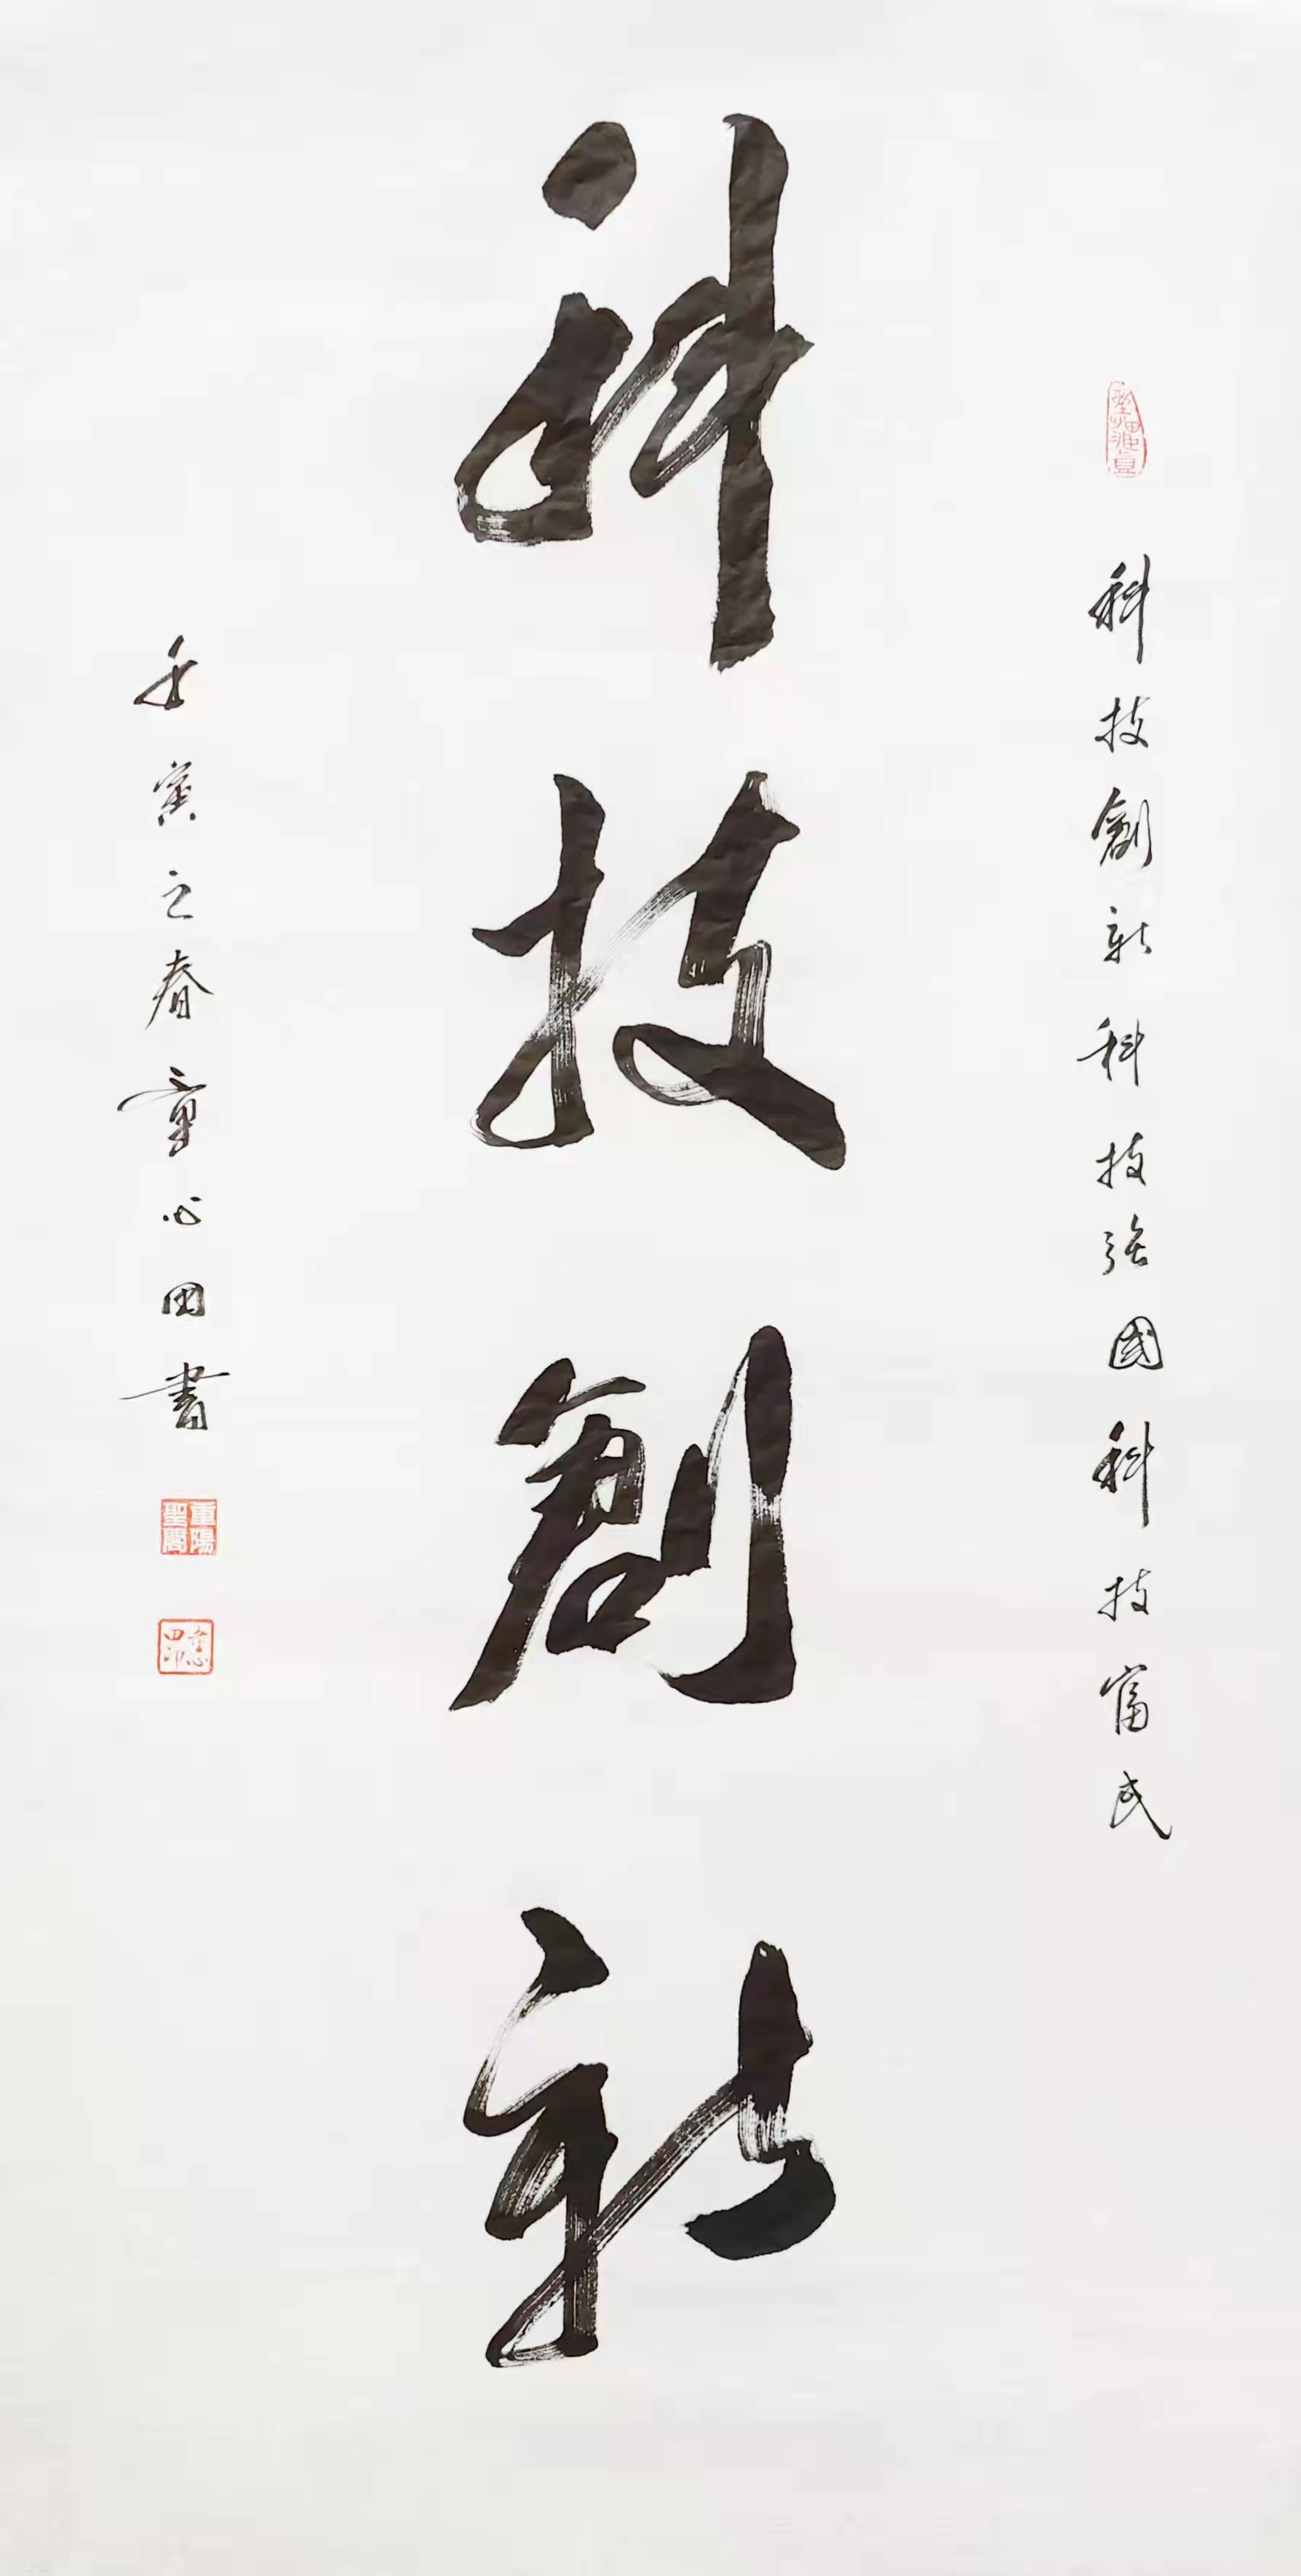 科技創新科技强國科技富民
科技創新
壬寅之春童心田書
重陽
聖閣